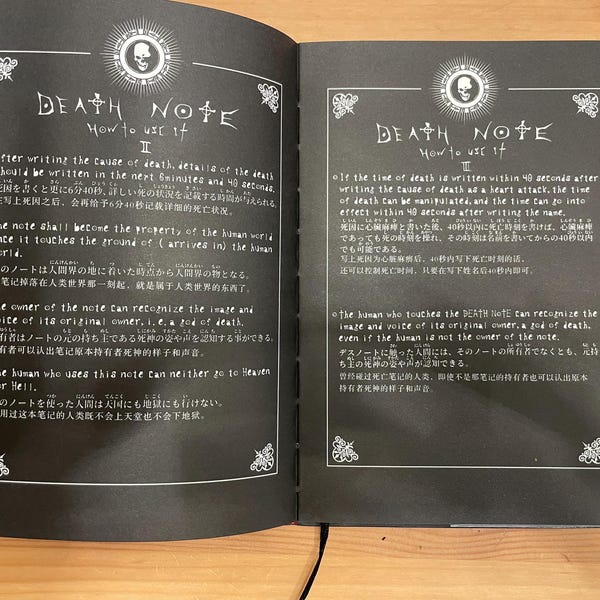 DEATH NOTE
How to use it
II
fter writing the cause of death, details of the death
hould be written in the next 6minutes and 40 seconds.
死因を書くと更に6分40秒、詳しい死の状況を記載する時間が与えられる
写上死因之后，会再给予6分40秒记载详细的死亡状况。
he note shall become the property of the human world
nce it touches the ground of ( arrives in) the human
orld.
のノートは人間界の地に着いた時点から人間界の物となる。
笔记掉落在人类世界那一刻起，就是属于人类世界的东西了。
he owner of the note can recognize the image and
oice of its original owner, i.e. a god of death.
有者はノートの元の持ち主である死神の姿や声を認知する事ができる。
有者可以认出笔记原本持有者死神的样子和声音。
he human who uses this note can neither go to Heaven
or Hell.
のノートを使った人間は天国にも地獄にも行けない。
用过这本笔记的人类既不会上天堂也不会下地狱。
DEATH NOTE
How to use it
III
If the time of death is written within 40 seconds after
writing the cause of death as a heart attack, the time
of death can be manipulated, and the time can go into
effect within 40 seconds after writing the name.
死因に心臓麻痺と書いた後、40秒以内に死亡時刻を書けば、心臓麻痺
であっても死の時刻を操れ、その時刻は名前を書いてからの40秒以内
でも可能である。
写上死因为心脏麻痹后，40秒内写下死亡时刻的话，
还可以控制死亡时间，只要在写下姓名后40秒内即可。
The human who touches the DEATH NOTE can recognize the
image and voice of its original owner, a god of death,
even if the human is not the owner of the note.
デスノートに触った人間には、そのノートの所有者でなくとも、元持
ち主の死神の姿や声が認知できる。
曾经碰过死亡笔记的人类，即使不是那笔记的持有者也可以认出原本
持有者死神的样子和声音。